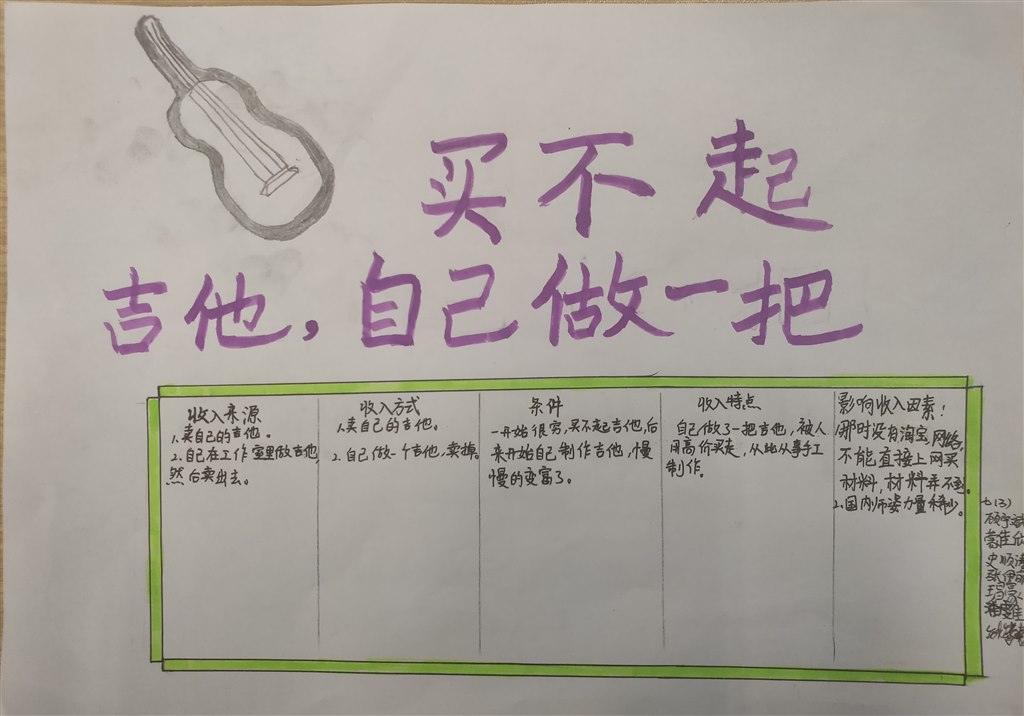 买不起
吉他，自己做一把
收入来源
1.卖自己的吉他。
2.自己在工作室里做吉他，
然后卖出去。
收入方式
1.卖自己的吉他。
2.自己做一个吉他，卖掉。
条件
一开始很穷，买不起吉他，后
来开始自己制作吉他，慢
慢的变富了。
收入特点
自己做了一把吉他，被人
用高价买走，从此从事手工
制作。
影响收入因素：
1.那时没有淘宝网络，
不能直接上网买
材料，材料弄不到。
2.国内师资力量稀少。
七(3)